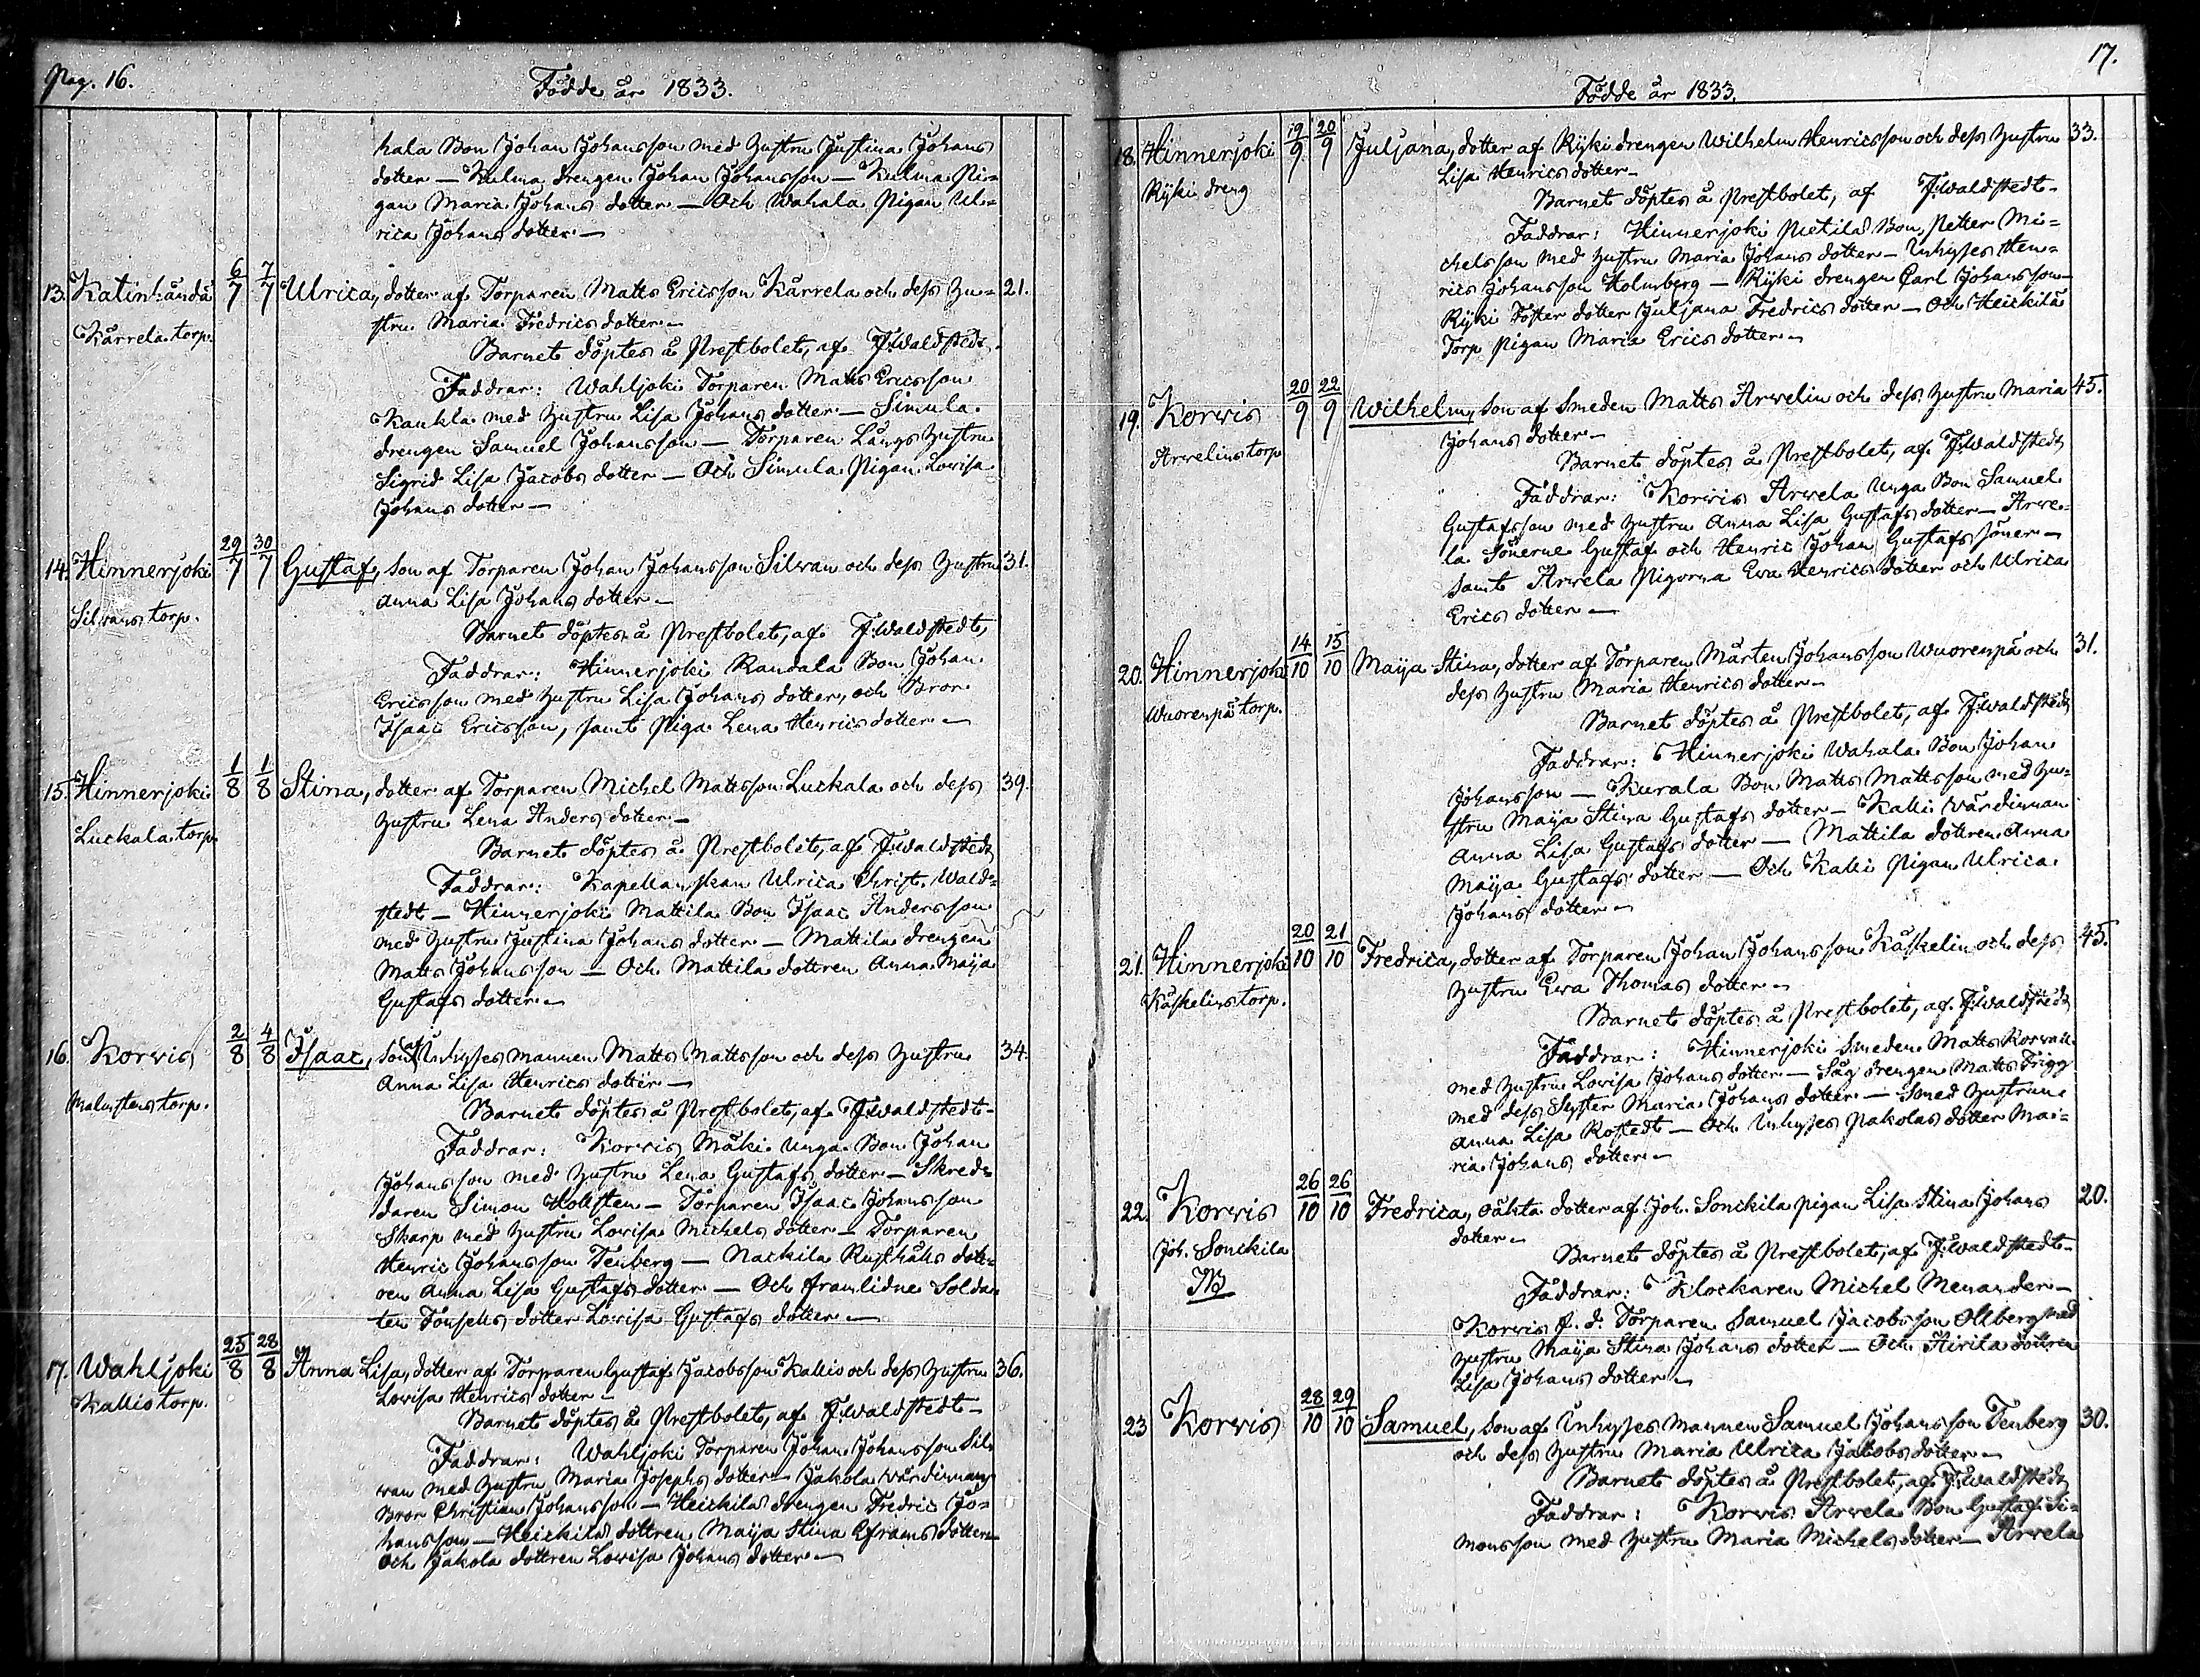 Pag. 16.
Födde år 1833.
hala Bon Johan Johansson med hustru Justina Johans
dotter — Kulma drengen Johan Johansson — Kulma Pi=
gan Maria Johans dotter — Och Wahala Pigan Ul=
rica Johans dotter —
13. Katinhändä 6/7 7/7 Ulrica, dotter af Torparen Matts Ericsson Kärrela och dess hu= 21.
Kärrela torp. stru Maria Fredrics dotter —
Barnet döptes å Prestbolet, af F. Waldstedt
Faddrar: Wahljoki Torparen Matts Ericsson
Kaukla med hustru Lisa Johans dotter — Simula
drengen Samuel Johansson — Torparen Långs hustru
Sigrid Lisa Jacobs dotter — Och Simula Pigan Lovisa
Johans dotter —
14. Hinnerjoki 29/7 30/7 Gustaf, son af Torparen Johan Johansson Silwan och dess hustru 31.
Silwans torp. Anna Lisa Johans dotter —
Barnet döptes å Prestbolet, af F. Waldstedt,
Faddrar: Hinnerjoki Randala Bon Johan
Ericsson med hustru Lisa Johans dotter, och Bror
Isaac Ericsson, samt Piga Lena Henrics dotter —
15. Hinnerjoki 1/8 1/8 Stina, dotter af Torparen Michel Mattsson Luckala och dess 39.
Luckala torp. hustru Lena Anders dotter —
Barnet döptes å Prestbolet, af F. Waldstedt
Faddrar: Kapellanskan Ulrica Christ. Wald=
stedt — Hinnerjoki Mattila Bon Isaac Andersson
med hustru Justina Johans dotter — Mattila drengen
Matts Johansson — Och Mattila dottren Anna Maija
Gustafs dotter —
16. Korvis 2/8 4/8 Isaac, son af Inhyses mannen Matts Mattsson och dess hustru 34.
Malmstens torp. Anna Lisa Henrics dotter —
Barnet döptes å Prestbolet, af F. Waldstedt —
Faddrar: Korvis Mäki unga Bon Johan
Johansson med hustru Lena Gustafs dotter — Skred=
daren Simon Hollsten — Torparen Isaac Johansson
Skarp med hustru Lovisa Michels dotter — Torparen
Henric Johansson Tenberg — Nackila Rusthålls dott=
ren Anna Lisa Gustafs dotter — Och framlidne Solda
ten dotter Lovisa Gustafs dotter —
17. Wahljoki 25/8 28/8 Anna Lisa, dotter af Torparen Gustaf Jacobsson Kallio och dess hustru 36.
Kallio torp. Lovisa Henrics dotter —
Barnet döptes å Prestbolet, af F. Waldstedt —
Faddrar: Wahljoki Torparen Johan Johansson Sil
wan med hustru Maria Josephs dotter — Jakola wärdinnans
Bror Christian Johansson — Heickilä drengen Fredric Jo=
hansson — Heickilä dottren Maija Stina Efraims dotter —
Och Jakola dottren Lovisa Johans dotter —
17.
Födde år 1833.
18. Hinnerjoki 19/9 20/9 Juljana, dotter af Ryki drengen Wilhelm Henricsson och dess hustru 33.
Ryki dreng Lisa Henrics dotter —
Barnet döptes å Prestbolet, af F. Waldstedt —
Faddrar: Hinnerjoki Pietilä Bon Petter Mi=
chelsson med hustru Maria Johans dotter — Inhyses Hen=
ric Johansson Holmberg — Ryki drengen Carl Johansson —
Ryki Foster dotter Juljana Fredrics dotter — Och Heickilä
Torp pigan Maria Erics dotter —
19. Korvis 20/9 22/9 Wilhelm, son af Smeden Matts Arwelin och dess hustru Maria 45.
Arwelins torp Johans dotter —
Barnet döptes å Prestbolet, af F. Waldstedt
Faddrar: Korvis Arwela unga Bon Samuel
Gustafsson med hustru Anna Lisa Gustafs dotter — Arwe=
la Sönerne Gustaf och Henric Johan Gustafs söner —
samt Arwela Pigorna Eva Henrics dotter och Ulrica
Erics dotter —
20. Hinnerjoki 14/10 15/10 Maija Stina, dotter af Torparen Mårten Johansson Wuorenpä och 31.
Wuorenpä torp. dess hustru Maria Henrics dotter —
Barnet döptes å Prestbolet, af F. Waldstedt
Faddrar: Hinnerjoki Wahala Bon Johan
Johansson — Kurala Bon Matts Mattsson med hu=
stru Maija Stina Gustafs dotter — Kalli wärdinnan
Anna Lisa Gustafs dotter — Mattila dottren Anna
Maija Gustafs dotter — Och Kalli Pigan Ulrica
Johans dotter —
21. Hinnerjoki 20/10 21/10 Fredrica, dotter af Torparen Johan Johansson Käskelin och dess 45.
Käskelins torp. hustru Eva Thomas dotter —
Barnet döptes å Prestbolet, af F. Waldstedt
Faddrar: Hinnerjoki Smeden Matts
med hustru Lovisa Johans dotter — Såg drengen Matts Frigg
med dess Syster Maria Johans dotter — Smed hustrun
Anna Lisa Rostedt — Och Inhyses Pakolas dotter Ma=
ria Johans dotter —
22. Korvis 26/10 26/10 Fredrica, oäkta dotter af Joh. Sonckila pigan Lisa Stina Johans 20.
Joh. Sonckila dotter —
NB
Barnet döptes å Prestbolet, af F. Waldstedt —
Faddrar: Klockaren Michel Menander —
Korvis f. d. Torparen Samuel Jacobsson Ollberg med
hustru Maija Stina Johans dotter — Och Airila dottren
Lisa Johans dotter —
23 Korvis 28/10 29/10 Samuel, son af Inhyses mannen Samuel Johansson Tenberg 30.
och dess hustru Maria Ulrica Jacobs dotter —
Barnet döptes å Prestbolet, af F. Waldstedt
Faddrar: Korvis Arwela Bon Gustaf Si=
monsson med hustru Maria Michels dotter — Arwela